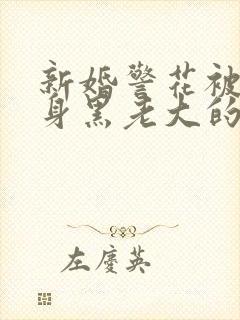 新婚警花被
身黑老大的
左庆英